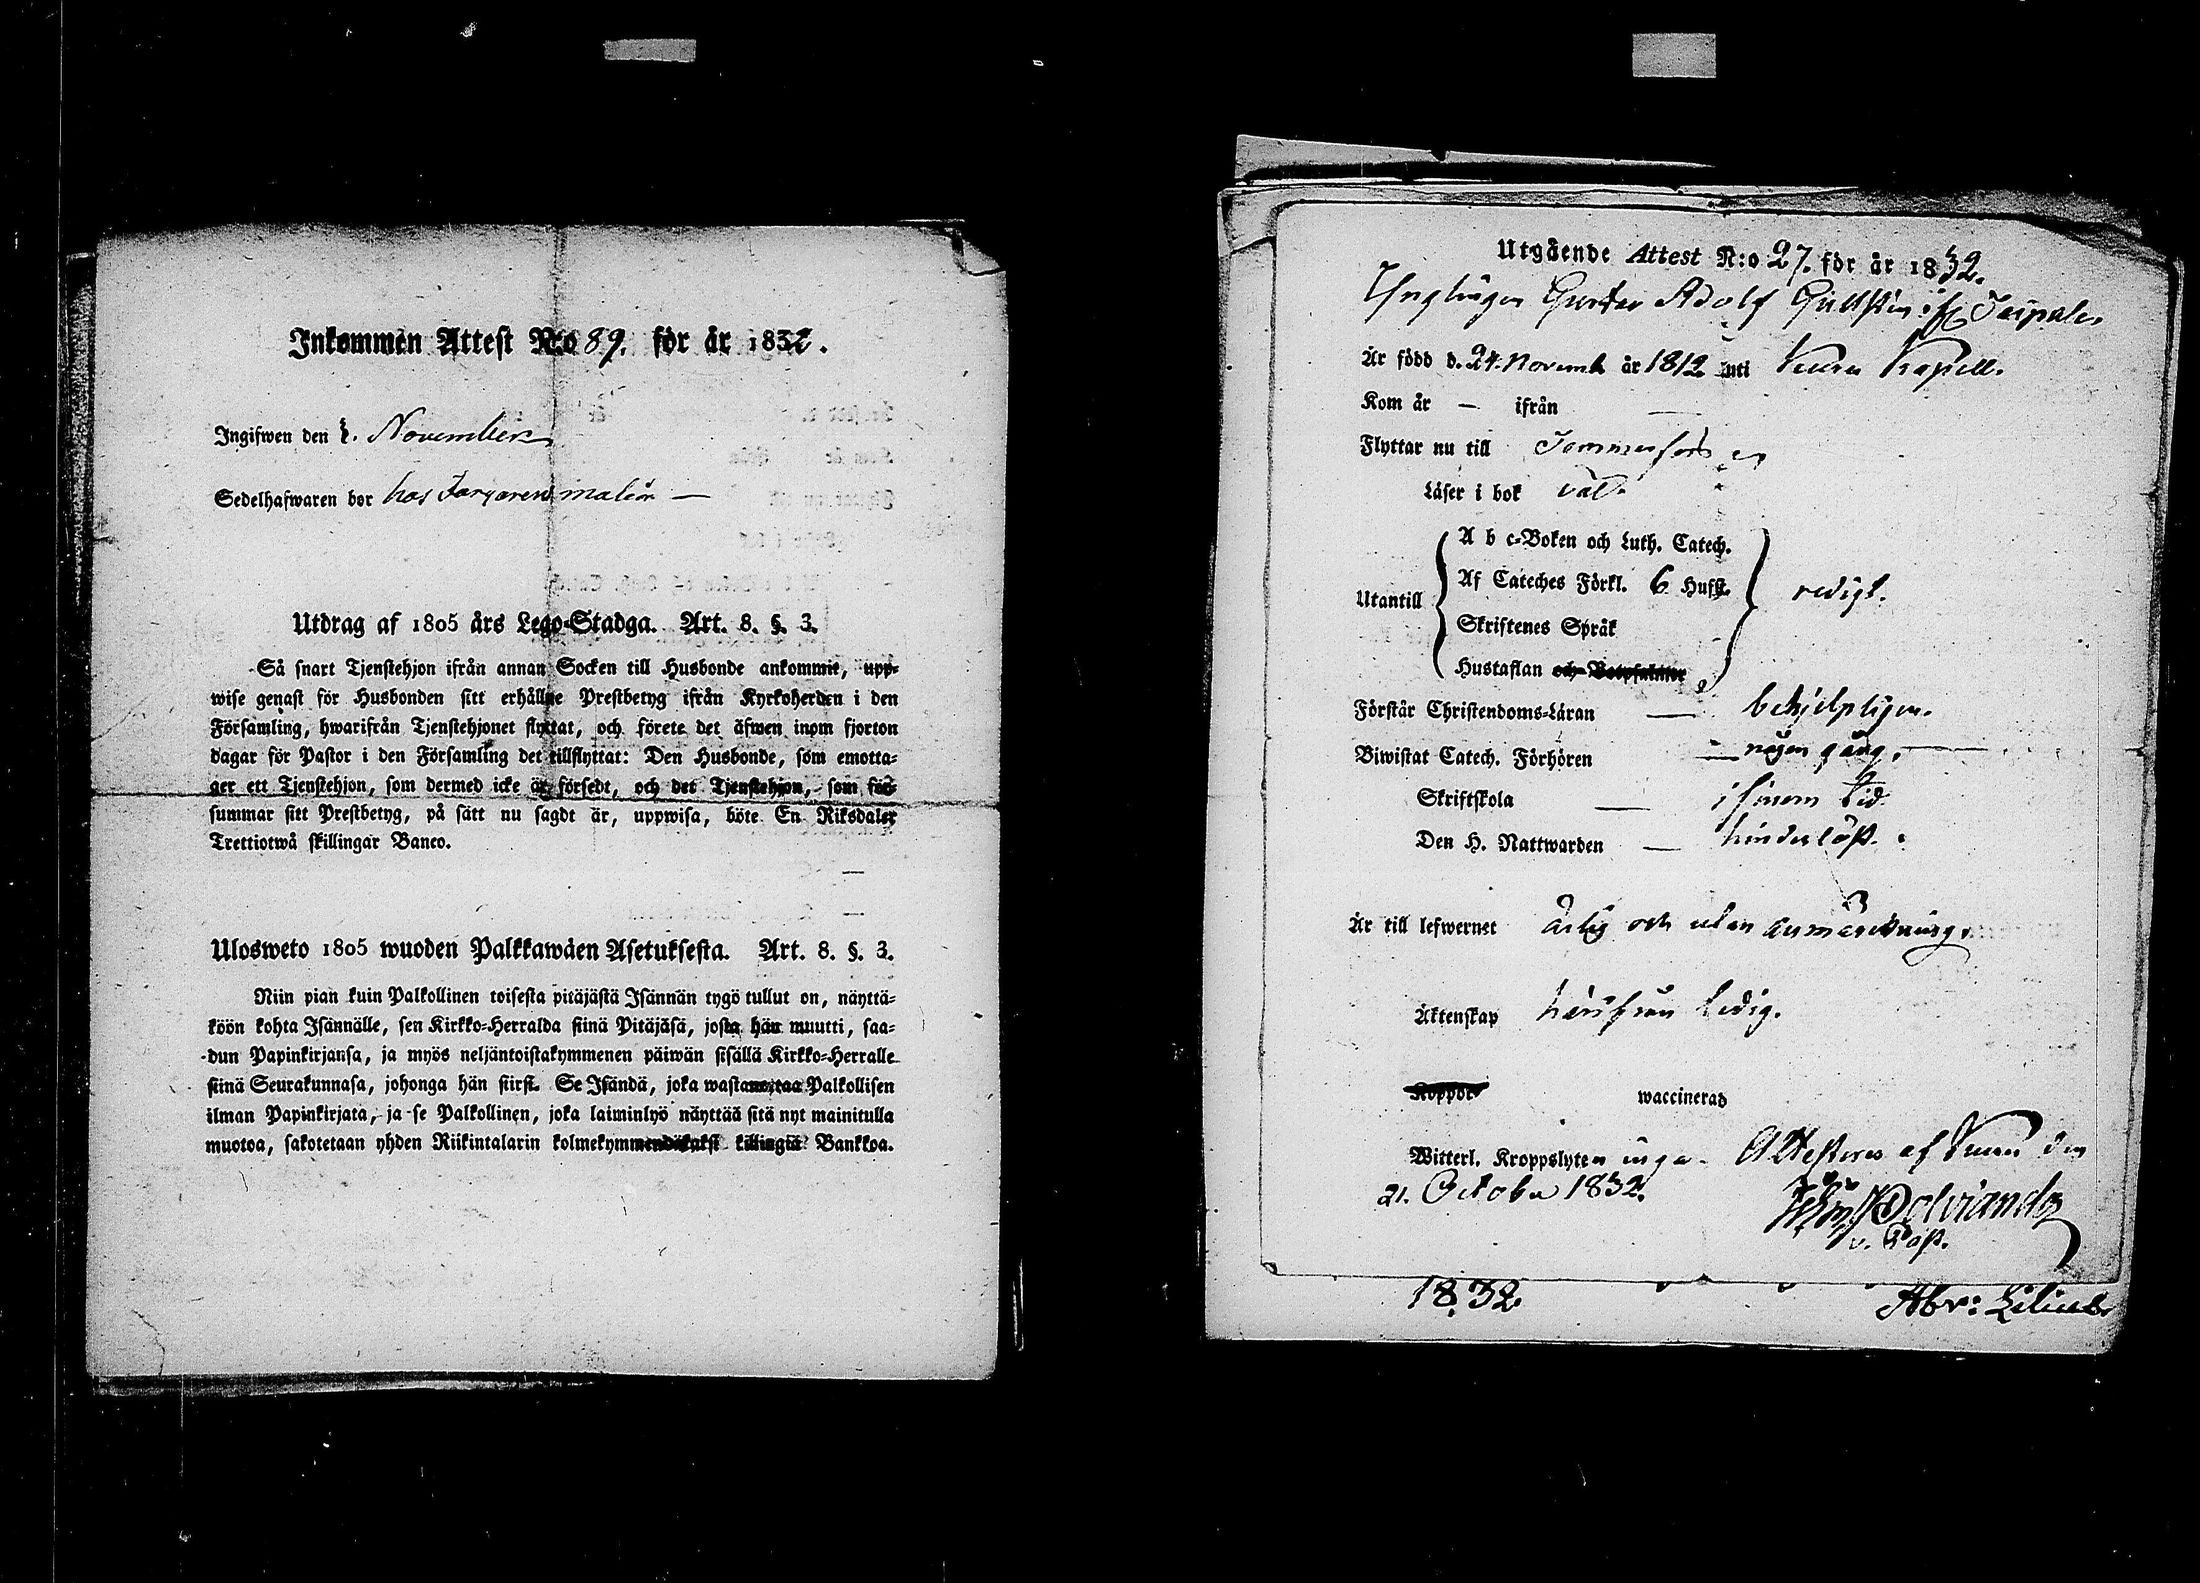 Inkommen Attest N:o 89. för år 1832.
Ingifwen den 2. November
Sedelhafwaren bor hos Fargaren malin —
Utdrag af 1805 års Lego-Stadga. Art. 8. §. 3.
Så snart Tjenstehjon ifrån annan Socken till Husbonde ankommit, upp-
wise genast för Husbonden sitt erhållne Prestbetyg ifrån Kyrkoherden i den
Församling, hwarifrån Tjenstehjonet flyttat, och förete det äfwen inom fjorton
dagar för Pastor i den Församling det tillflyttat: Den Husbonde, som emotta-
ger ett Tjenstehjon, som dermed icke är försedt, och det Tjenstehjon, som för-
summar sitt Prestbetyg, på sätt nu sagdt är, uppwisa, böte En Riksdaler
Trettiotwå skillingar Banco.
Ulosweto 1805 wuoden Palkkawäen Asetuksesta. Art. 8. §. 3.
Niin pian kuin Palkollinen toisesta pitäjästä Isännän tygö tullut on, näyttä-
köön kohta Isännälle, sen Kirkko-Herralda siinä Pitäjäsä, josta hän muutti, saa-
dun Papinkirjansa, ja myös neljäntoistakymmenen päiwän sisällä Kirkko-Herralle
siinä Seurakunnasa, johonga hän siirst. Se Isändä, joka wastanottaa Palkollisen
ilman Papinkirjata, ja se Palkollinen, joka laiminlyö näyttää sitä nyt mainitulla
muotoa, sakotetaan yhden Riikintalarin kolmekymmendäkaksi killingiä Bankkoa.
Utgående Attest N:o 27. för år 1832.
Ynglingen Gustav Adolf Gullstén Taipale
Är född d. 24. Novemb. år 1812 uti Keuru Kapell.
Kom år — ifrån —
Flyttar nu till Tammerfors
Läser i bok väl.
Utantill
A b c-Boken och Luth. Catech.
Af Cateches Förkl. 6 Hufst.
Skriftenes Språk
Hustaflan och Botpsalmer
redigt.
Förstår Christendoms-Läran — behjelpligen.
Biwistat Catech. Förhören — någon gång.
Skriftskola — i sinom tid
Den H. Nattwarden — hinderlöst.
Är till lefwernet ärlig och utan anmärkning.
Äktenskap härifrån ledig.
Koppor waccinerad
Witterl. Kroppslyten inga. Attesteras af Keuru den
21. October 1832.
v. Past.
1832
Abr: Lilius